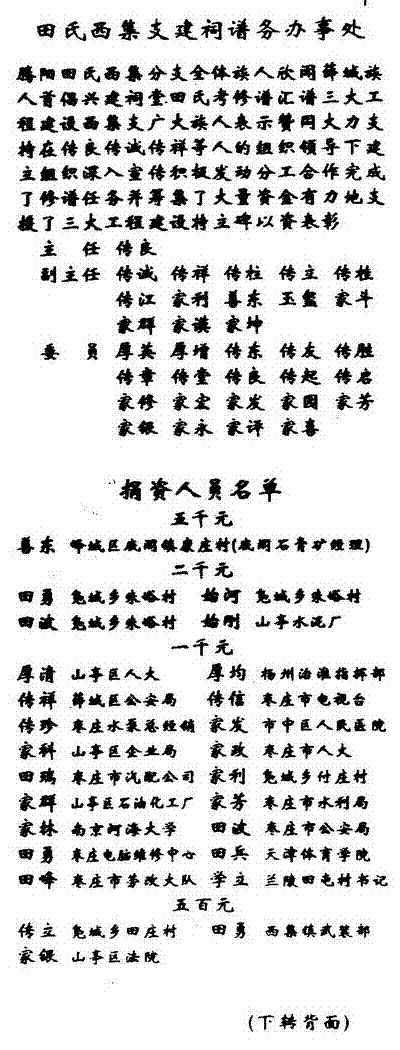 田氏西集支建祠谱务办事处
滕阳田氏西集分支全体族人欣闻薛城族
人首倡兴建祠堂田氏考修谱汇谱三大工
程建设西集支广大族人表示赞同大力支
持在传良传诚传祥等人的组织领导下建
立组织深入宣传积极发动分工合作完成
了修谱任务并筹集了大量资金有力地支
援了三大工程建设特立碑以资表彰
主 任 传良
副主任 传诚 传祥 传柱 传立 传桂
传江 家利 善东 玉玺 家斗
家群 家谟 家坤
委 员 厚英 厚增 传东 传友 传胜
传章 传堂 传良 传起 传启
家修 家宏 家发 家园 家芳
家银 家永 家评 家喜
捐资人员名单
五千元
善东 峄城区底阁镇康庄村(底阁石膏矿经理)
二千元
田勇 凫城乡朱峪村 始河 凫城乡朱峪村
田波 凫城乡朱峪村 始刚 山亭水泥厂
一千元
厚清 山亭区人大 厚均 扬州治淮指挥部
传祥 薛城区公安局 传信 枣庄市电视台
传珍 枣庄水泵总经销 家发 市中区人民医院
家科 山亭区企业局 家政 枣庄市人大
田瑞 枣庄市汽配公司 家利 凫城乡付庄村
家群 山亭区石油化工厂 家芳 枣庄市水利局
家林 南京河海大学 田波 枣庄市公安局
田勇 枣庄电脑维修中心 田兵 天津体育学院
田峰 枣庄市劳改大队 学立 兰陵田屯村书记
五百元
传立 凫城乡田庄村 田勇 西集镇武装部
家银 山亭区法院
(下转背面)